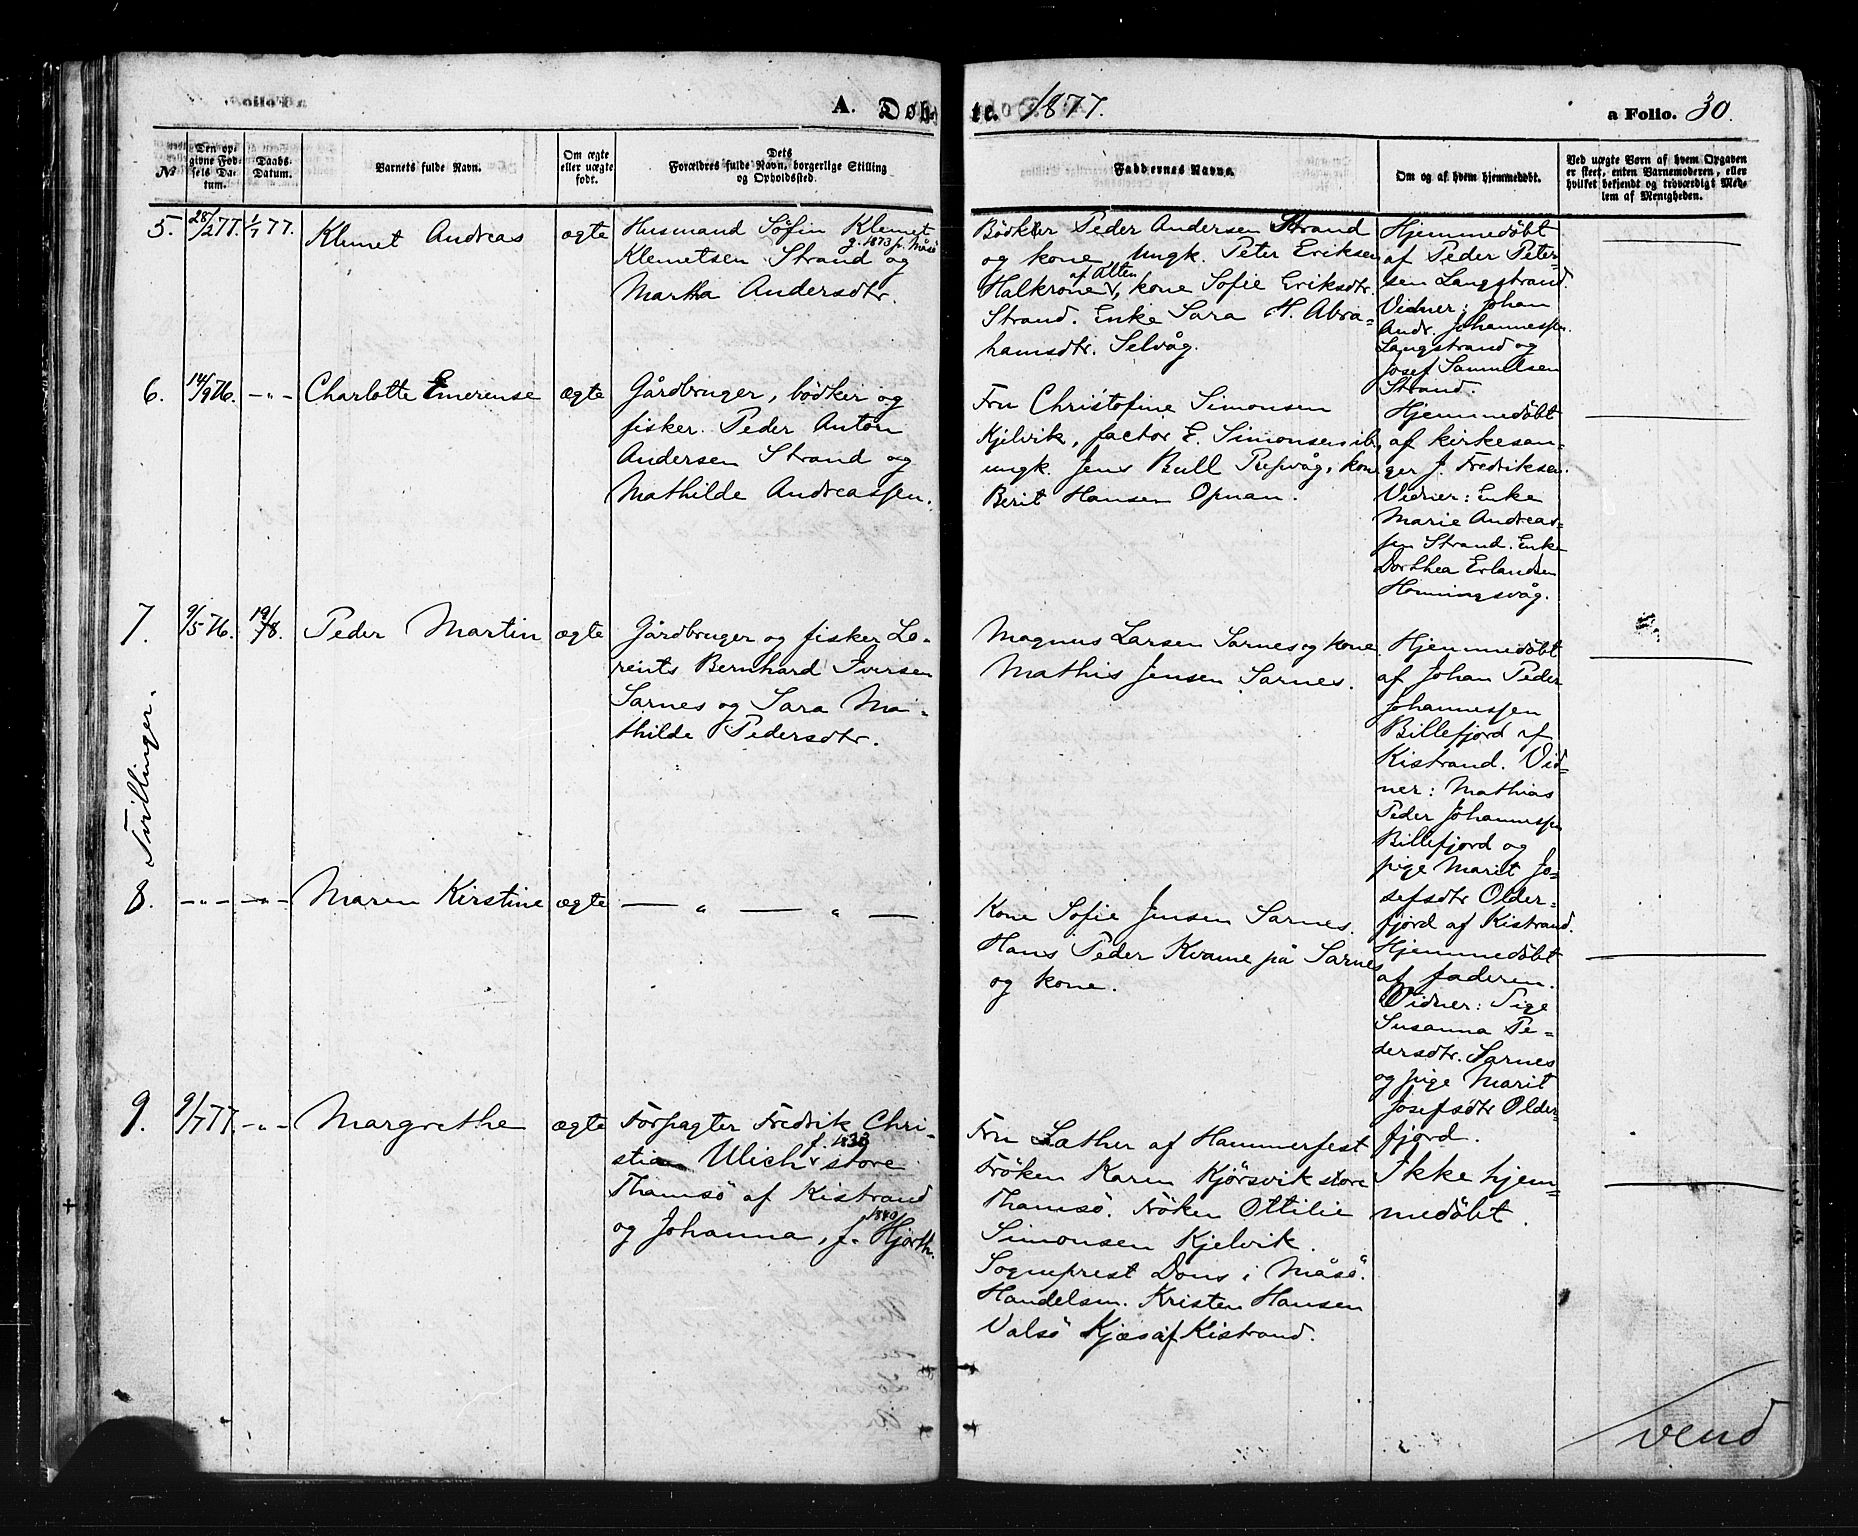 A. Døbte. 1877. a Folio. 30.
№
Den opgivne Fødsels Datum.
Daabs-Datum.
Varnets fulde Navn.
Om ægte eller uægte født.
Dets Forældres fulde Navn, borgerlige Stilling og Opholdssted.
Faddernes Navne.
Om og af hvem hjemmedøbt.
Ved uægte Børn af hvem Opgaven er skeet, enten Barnemoderen, eller hvilket bekjendt og troværdigt Medlem af Menigheden.
5. 28/2 77. 1/7 77. Klemet Andreas ægte
Husmand Söfin Klemet
g. 1873 f. Måsö
Klemetsen Strand og
Martha Andersdtr.
Bödker Peder Andersen Strand
og kone, ungk. Peter Eriksen
af Alten
Halkroner, kone Sofie Eriksdtr.
Strand. Enke Sara H. Abra-
hamsdtr. Selvåg.
Hjemmedöbt
af Peder Peter-
sen Langstrand.
Vidner: Johan
Andr. Johannessen
Langstrand og
Josef Samuelsen
Strand.
6. 14/9 76. -"- Charlotte Emerense ægte
Gårdbruger, bödker og
fisker. Peder Anton
Andersen Strand og
Mathilde Andreassen.
Fru Christofine Simonsen
Kjelvik, factor E. Simonsen ib.
ungk. Jens Bull Repvåg, kone
Berit Hansen Opnan.
Hjemmedöbt
af kirkesan-
ger J. Fredriksen.
Vidner: Enke
Marie Andreas-
sen Strand. Enke
Dorthea Erlandsen
Honningsvåg.
7. 9/5 76. 19/8. Peder Martin ægte
Gårdbruger og fisker Lo-
rents Bernhard Iversen
Sarnes og Sara Ma-
thilde Pedersdtr.
Magnus Larsen Sarnes og kone
Mathis Jensen Sarnes.
Hjemmedöbt
af Johan Peder
Johannessen
Billefjord af
Kistrand. Vid-
ner: Mathias
Peder Johannessen
Billefjord og
pige Marit Jo-
sefsdtr Older-
fjord af Kistrand.
Tvillinger.
8. -"- -"- Maren Kirstine ægte — " — " —
Kone Sofie Jensen Sarnes.
Hans Peder Kvame på Sarnes
og kone.
Hjemmedöbt
af faderen.
Vidner: Pige
Susanna Pe-
dersdtr. Sarnes
og pige Marit
Josefsdtr Older-
fjord.
9. 9/7 77. -"- Margrethe ægte
Forpagter Fredrik Chri-
f. 1833
stian Ulich store
Thamsö af Kistrand
1840
og Johanna, f. Hjorth.
Fru Læther af Hammerfest
Fröken Karen Kjörsvik store
Thamsö. Fröken Ottilie
Simonsen Kjelvik.
Sogneprest Dons i Måsö.
Handelsm. Kristen Hansen
Valsö Kjæs af Kistrand.
Ikke hjem-
medöbt.
vend